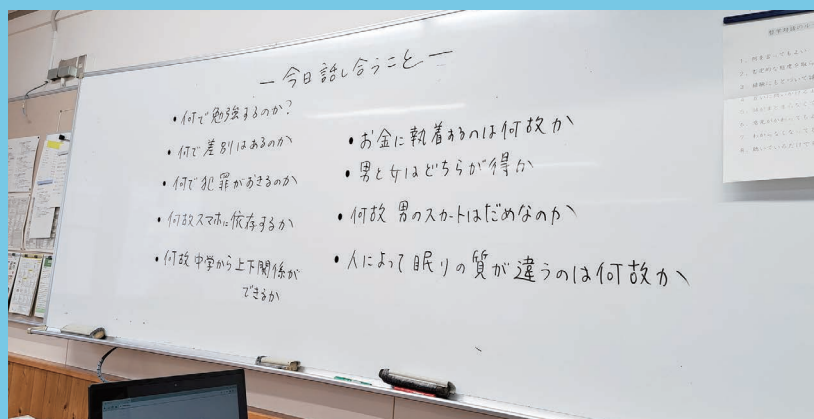 ― 今日話し合うこと ―
• 何で勉強するのか?
• 何で差別はあるのか
• 何で犯罪がおきるのか
• 何故スマホに依存するか
• 何故中学から上下関係が
できるか
• お金に執着するのは何故か
• 男と女はどちらが得か
• 何故男のスカートはだめなのか
• 人によって眠りの質が違うのは何故か